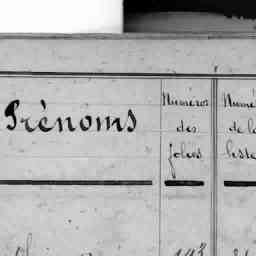 Prénoms
Numéros
des
folios
Numé
de la
liste